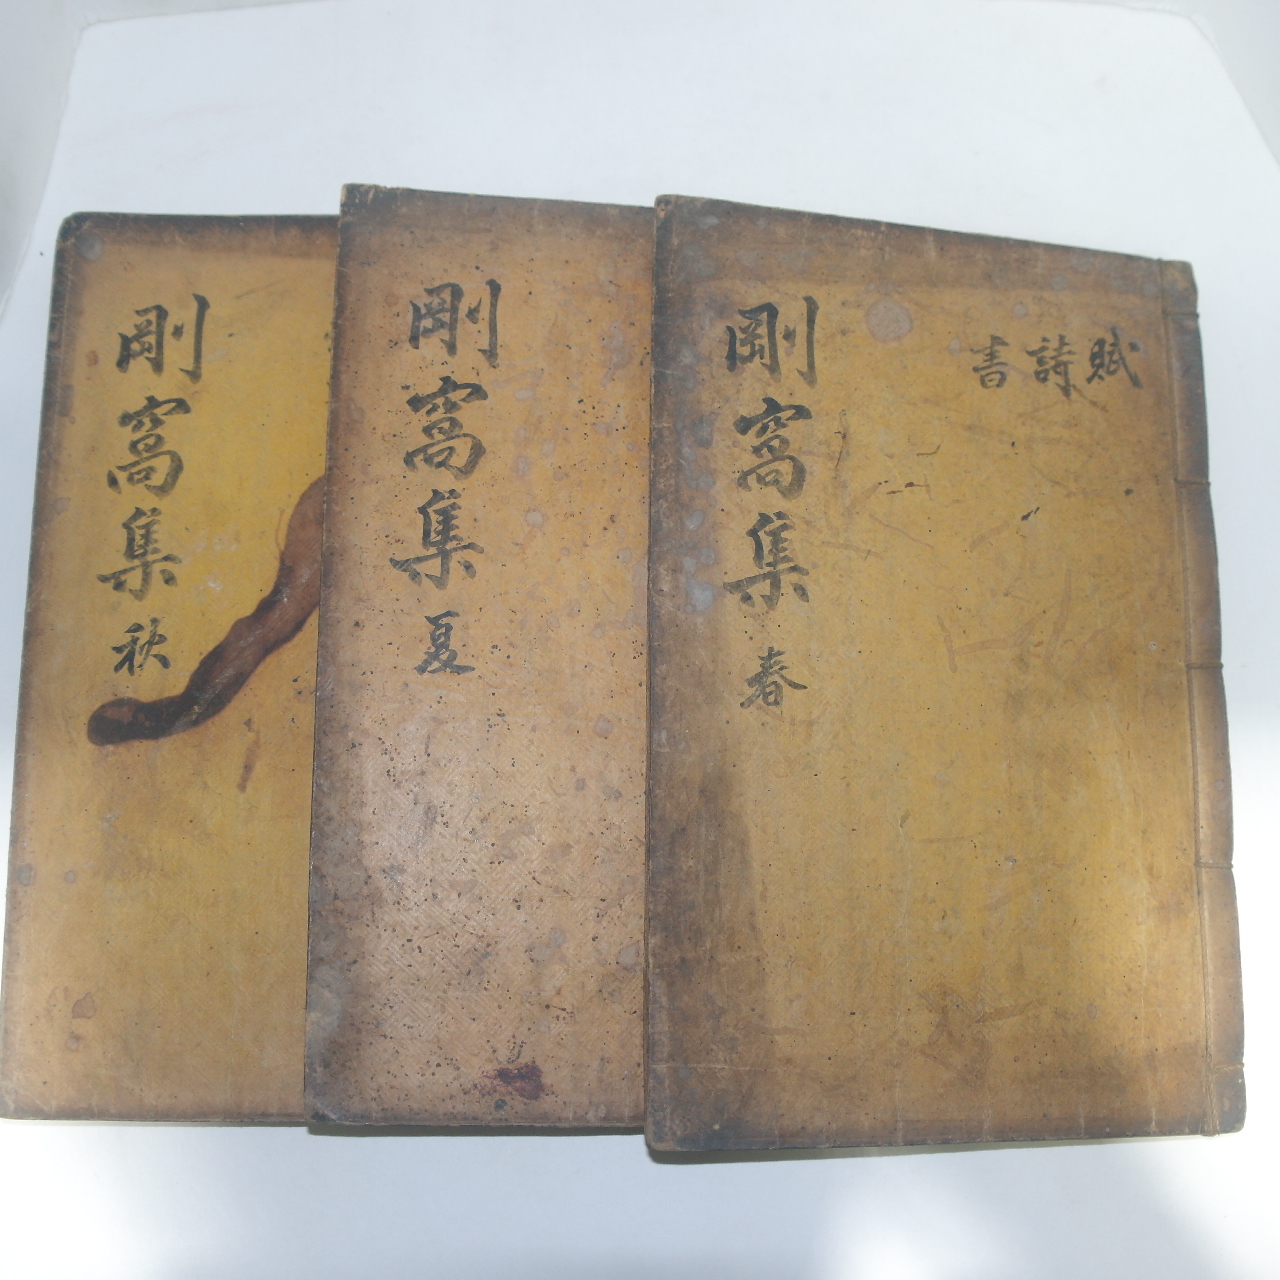 賦
詩
書
剛窩集 春
剛窩集 夏
剛窩集 秋